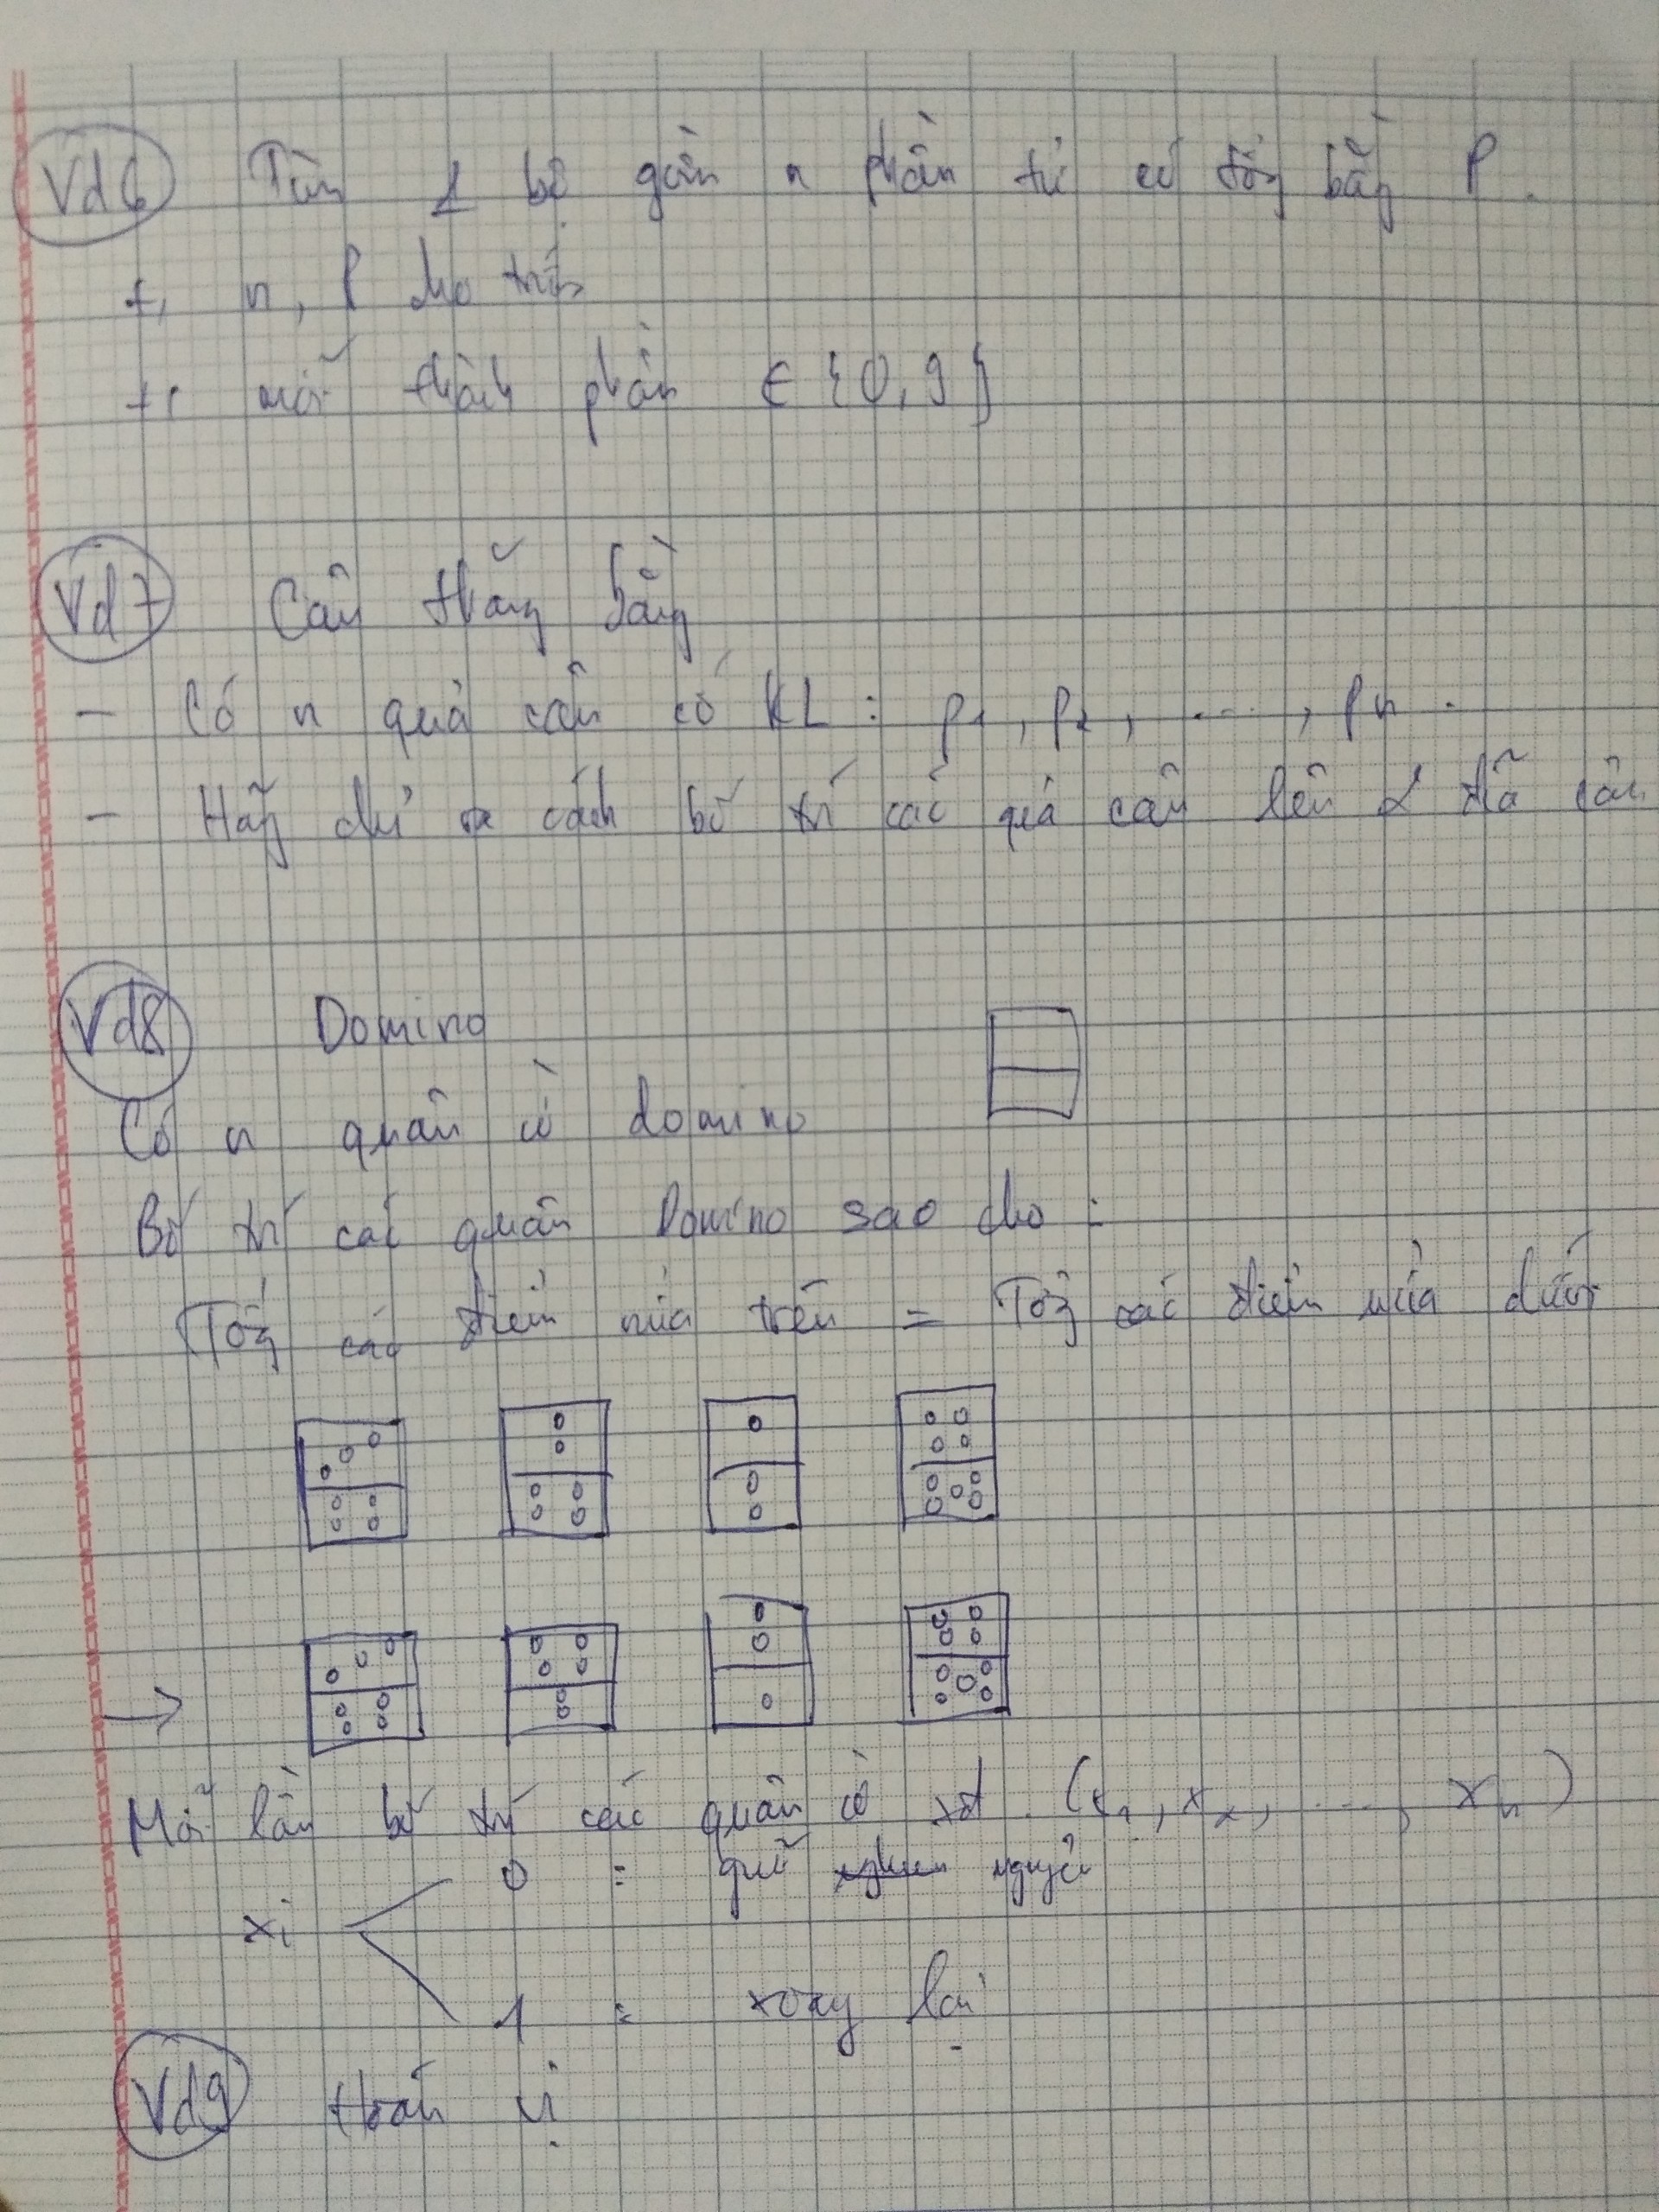 Vd6 Tìm 1 bộ gồm n phần tử có tổng bằng P.
+, n, P cho trước
+, mỗi thành phần ∈ {0, 9}
Vd7 Cân thăng bằng
- Có n quả cân có KL : p1, p2, ..., pn.
- Hãy chỉ ra cách bố trí các quả cân lên 2 đĩa cân
Vd8 Domino
Có n quân cờ domino
Bố trí các quân Domino sao cho :
Tổng các điểm nửa trên = Tổng các điểm nửa dưới
→
Mỗi lần bố trí các quân cờ xđ (x1, x2, ..., xn)
0 : giữ nguyên
xi
1 : xoay lại
Vd9 Hoán vị